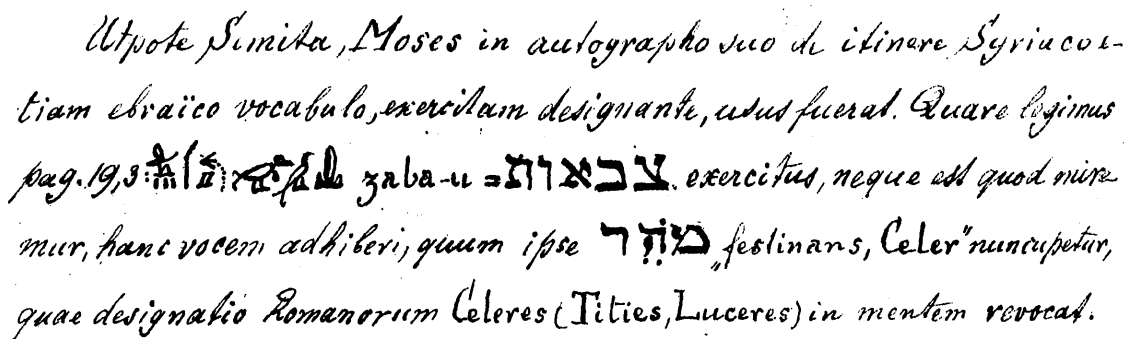 Utpote Semita, Moses in autographo suo de itinere Syriaco e-
tiam ebraïco vocabulo, exercitum designante, usus fuerat. Quare legimus
pag. 19,3: zaba-u = צבאות exercitus, neque est quod mire-
mur, hanc vocem adhiberi, quum ipse מהר „festinans, Celer" nuncupetur,
quae designatio Romanorum Celeres (Tities, Luceres) in mentem revocat.